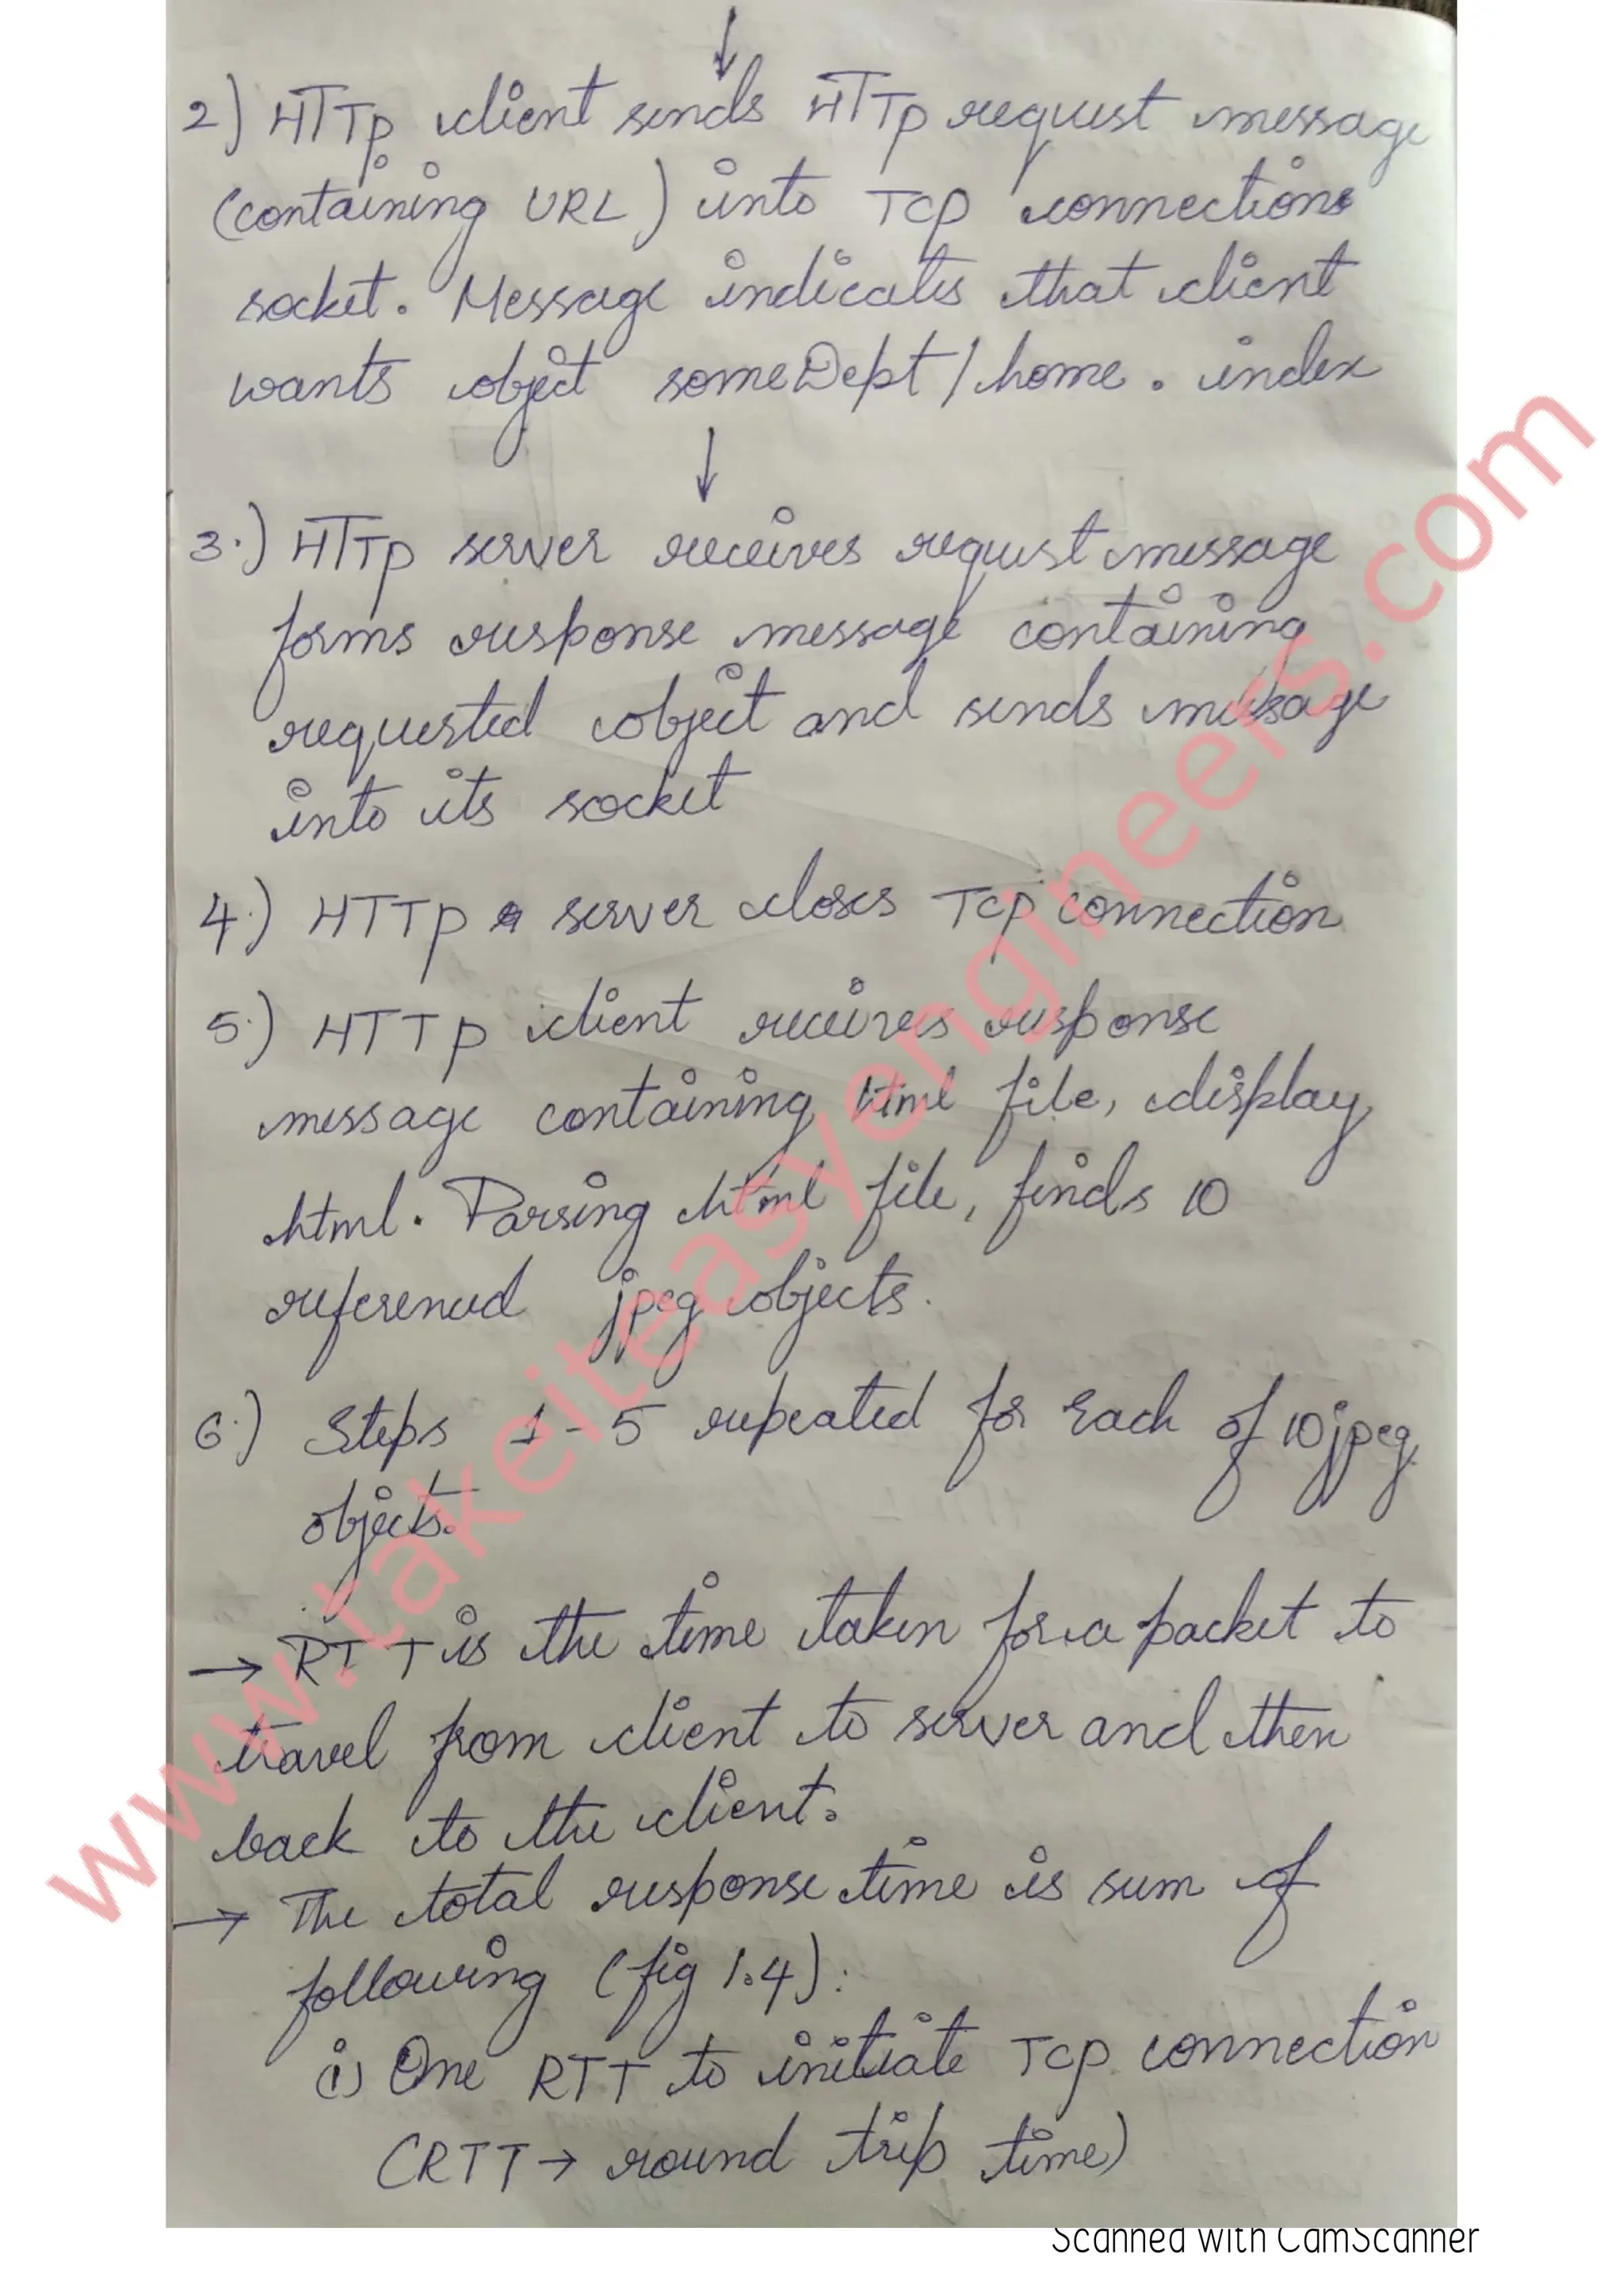 ↓
2) HTTP client sends HTTP request message
(containing URL) into TCP connection
socket. Message indicates that client
wants object someDept/home.index
↓
3.) HTTP server receives request message
forms response message containing
requested object and sends message
into its socket
4.) HTTP server closes TCP connection
5.) HTTP client receives response
message containing html file, display
html. Parsing html file, finds 10
referenced jpeg objects.
6.) Steps 1-5 repeated for each of 10 jpeg
objects.
→ RTT is the time taken for a packet to
travel from client to server and then
back to the client.
→ The total response time is sum of
following (fig 1.4):
i) One RTT to initiate TCP connection
(RTT → round trip time)
www.takeiteasyengineers.com
Scanned with CamScanner